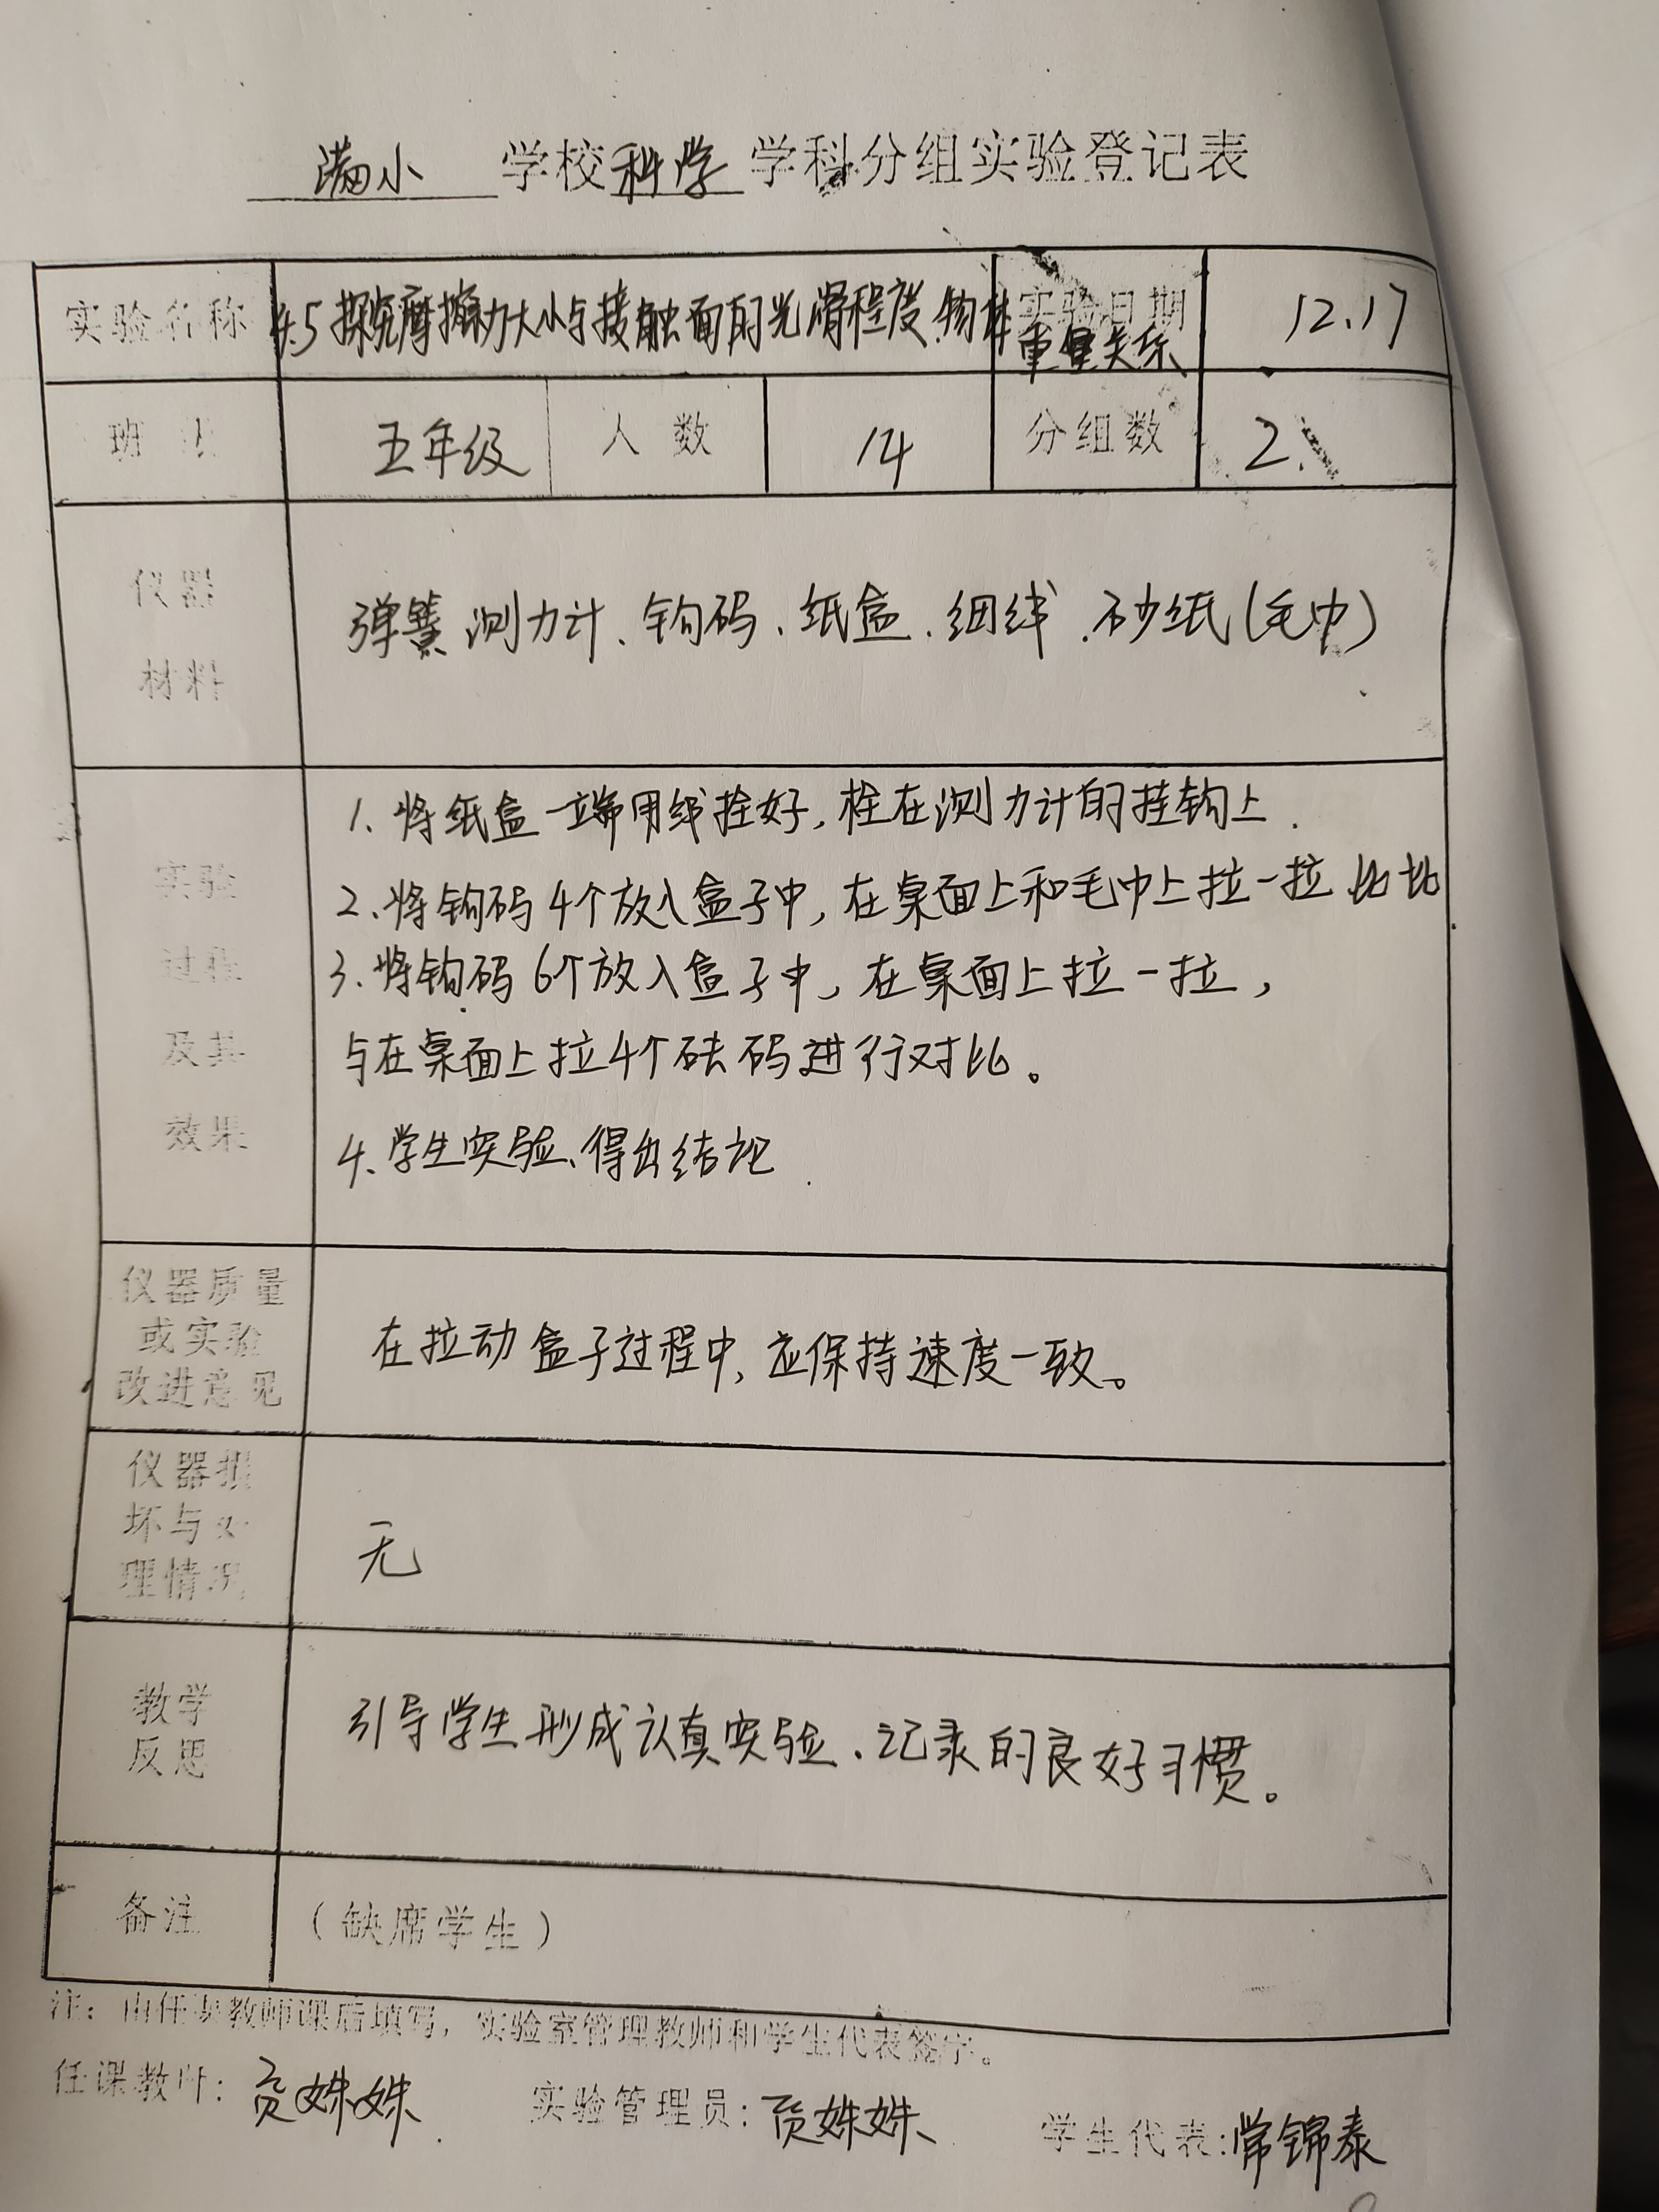 满小 学校 科学 学科分组实验登记表
实验名称 4.5 探究摩擦力大小与接触面的光滑程度、物体重量关系 实验日期 12.17
班 五年级 人数 14 分组数 2
仪器
材料
弹簧测力计、钩码、纸盒、细线、砂纸(毛巾)
实验
过程
及其
效果
1、将纸盒一端用线拴好,栓在测力计的挂钩上.
2、将钩码4个放入盒子中,在桌面上和毛巾上拉一拉 比比
3、将钩码6个放入盒子中,在桌面上拉一拉,
与在桌面上拉4个砝码进行对比。
4、学生实验、得出结论.
仪器质量
或实验
改进意见
在拉动盒子过程中,应保持速度一致。
仪器损
坏与处
理情况
无
教学
反思
引导学生形成认真实验、记录的良好习惯。
备注 (缺席学生)
注:由任课教师课后填写,实验室管理教师和学生代表签字。
任课教师: 姝姝 实验管理员: 姝姝 学生代表:常锦泰